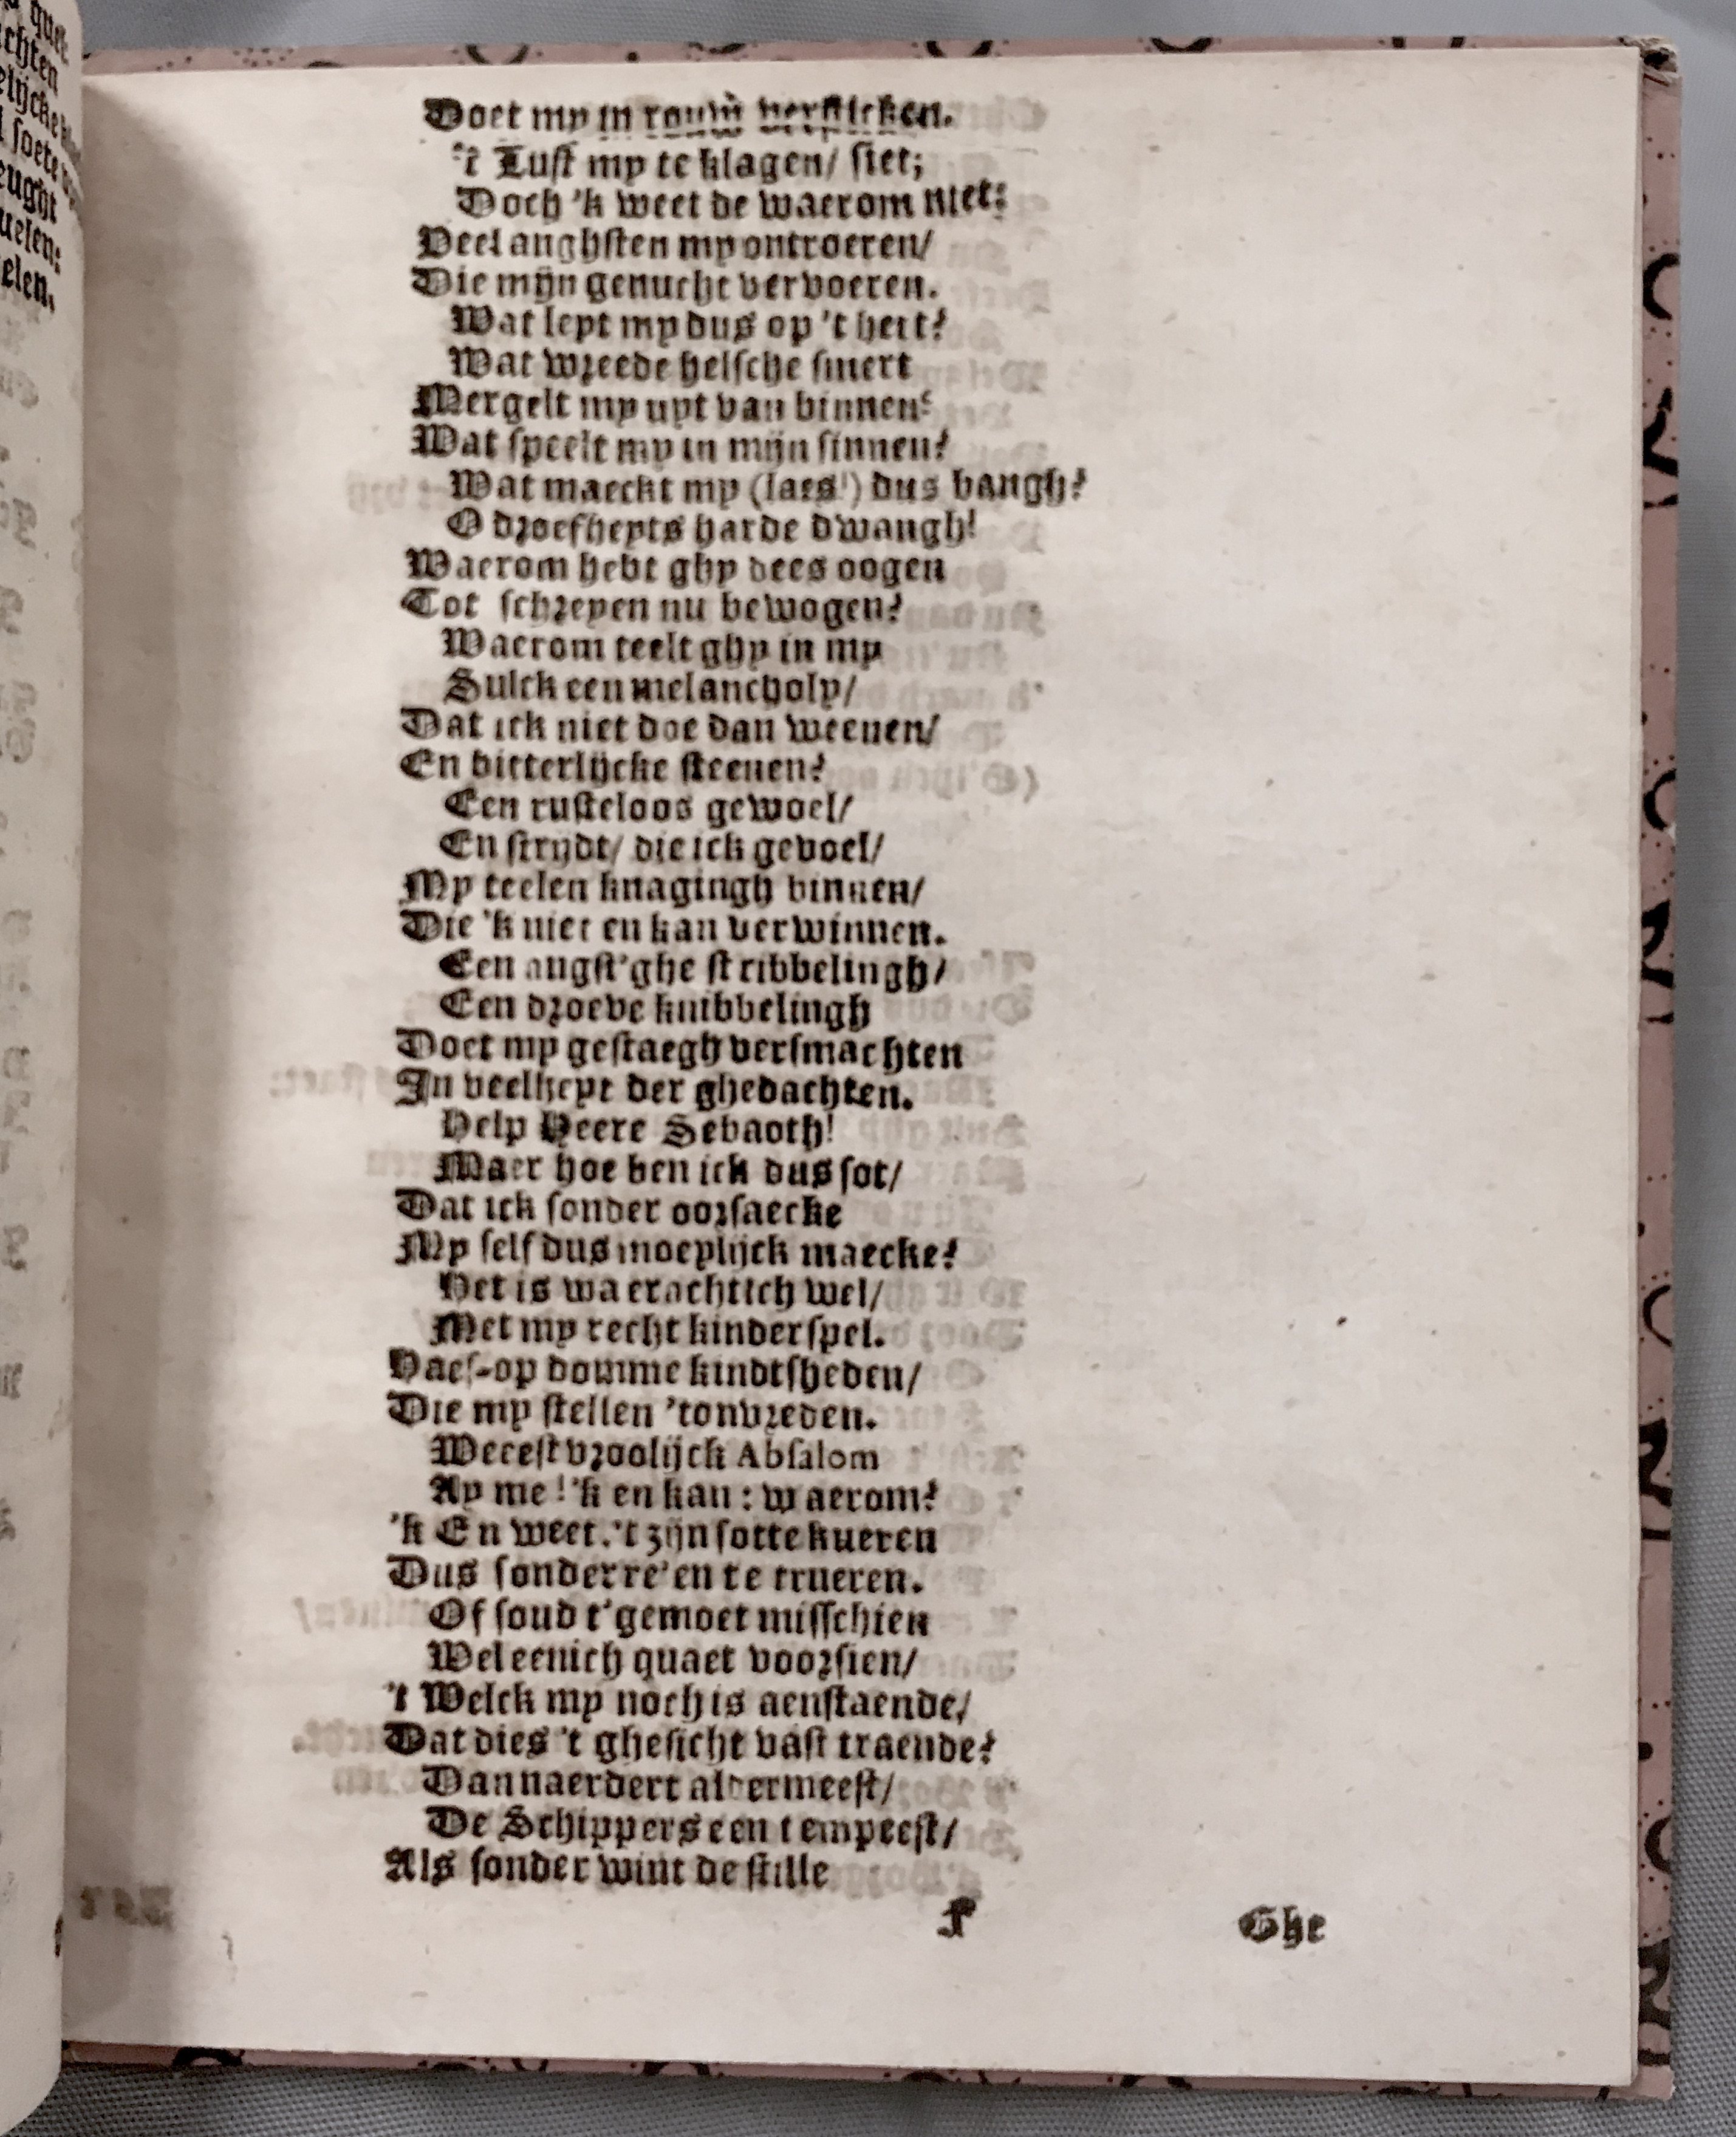 Doet my in rouw versticken.
't Lust my te klagen/ siet;
Doch 'k weet de waerom niet:
Veel anghsten my ontroeren/
Die mijn genucht vervoeren.
Wat leyt my dus op 't hert?
Wat wreede helsche smert
Mergelt my uyt van binnen?
Wat speelt my in mijn sinnen?
Wat maeckt my (laes!) dus bangh?
O droefheyts harde dwangh!
Waerom hebt ghy dees oogen
Tot schreyen nu bewogen?
Waerom teelt ghy in my
Sulck een melancholy/
Dat ick niet doe dan weenen/
En bitterlijcke steenen?
Een rusteloos gewoel/
En strijdt/ die ick gevoel/
My teelen knagingh binnen/
Die 'k niet en kan verwinnen.
Een angst'ghe stribbelingh/
Een droeve knibbelingh
Doet my gestaegh versmachten
In veelheyt der ghedachten.
Help Heere Sebaoth!
Maer hoe ben ick dus sot/
Dat ick sonder oorsaecke
My self dus moeylijck maecke?
Het is waerachtich wel/
Met my recht kinderspel.
Haes-op domme kindtsheden/
Die my stellen 'tonvreden.
Weeest vroolijck Absalom
Ay me! 'k en kan: waerom?
'k En weet. 't zijn sotte kueren
Dus sonder re'en te trueren.
Of soud t'gemoet misschien
Wel eenich quaet voorsien/
't Welck my noch is aenstaende/
Dat dies 't ghesicht vast traende?
Dan naerdert aldermeest/
De Schippers een tempeest/
Als sonder wint de stille
F Ghe